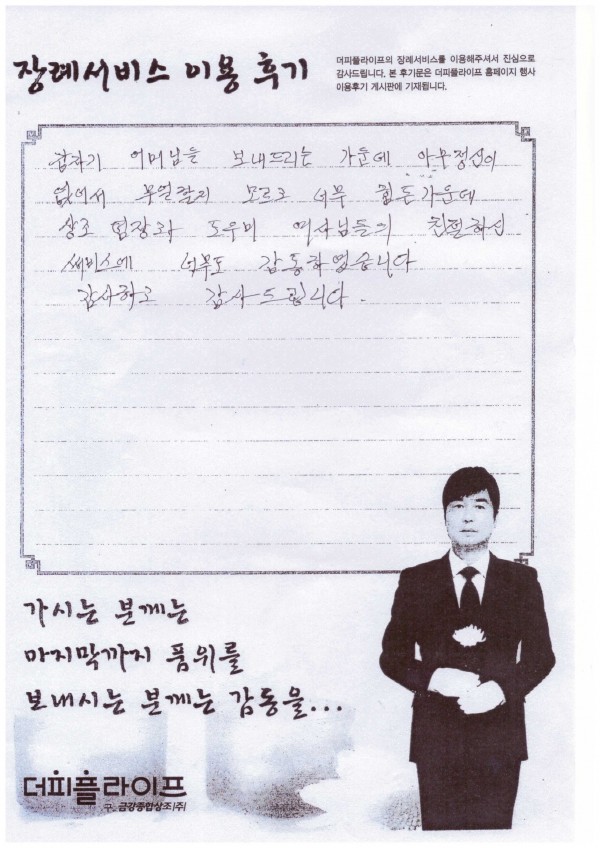 장례서비스 이용 후기
더피플라이프의 장례서비스를 이용해주셔서 진심으로
감사드립니다. 본 후기문은 더피플라이프 홈페이지 행사
이용후기 게시판에 기재됩니다.
갑자기 어머님을 보내드리는 가운데 아무정신이
없어서 무얼할지 모르고 너무 힘든가운데
상조 팀장과 도우미 여사님들의 친절하신
써비스에 너무도 감동하였습니다
감사하고 감사드립니다.
가시는 분께는
마지막까지 품위를
보내시는 분께는 감동을...
더피플라이프
구. 금강종합상조(주)